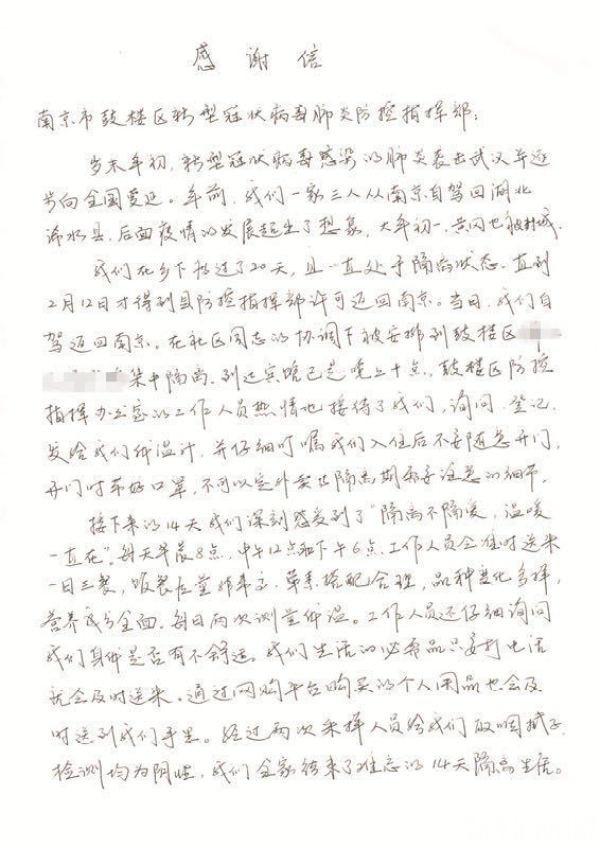 感谢信
南京市鼓楼区新型冠状病毒肺炎防控指挥部:
岁末年初,新型冠状病毒感染的肺炎袭击武汉并逐
步向全国蔓延。年前,我们一家三人从南京自驾回湖北
浠水县,后面疫情的发展超出了想象,大年初一,黄冈也被封城.
我们在乡下待过了20天,且一直处于隔离状态.直到
2月12日才得到县防控指挥部许可返回南京。当日,我们自
驾返回南京。在社区同志的协调下被安排到鼓楼区
集中隔离.到达宾馆已是晚上十点,鼓楼区防控
指挥办公室的工作人员热情地接待了我们,询问、登记、
发给我们体温计,并仔细叮嘱我们入住后不要随意开门,
开门时带好口罩,不可以定外卖及隔离期需要注意的细节.
接下来的14天我们深刻感受到了"隔离不隔暖,温暖
一直在".每天早晨8点,中午12点和下午6点,工作人员会准时送来
一日三餐,饭餐质量非常高.荤素搭配合理,品种变化多样,
营养成分全面.每日两次测量体温。工作人员还仔细询问
我们身体是否有不舒适。我们生活的必需品只要打电话
就会及时送来,通过网购平台购买的个人用品也会及
时送到我们手里。经过两次采样人员给我们做咽拭子,
检测均为阴性,我们全家结束了难忘的14天隔离生活。